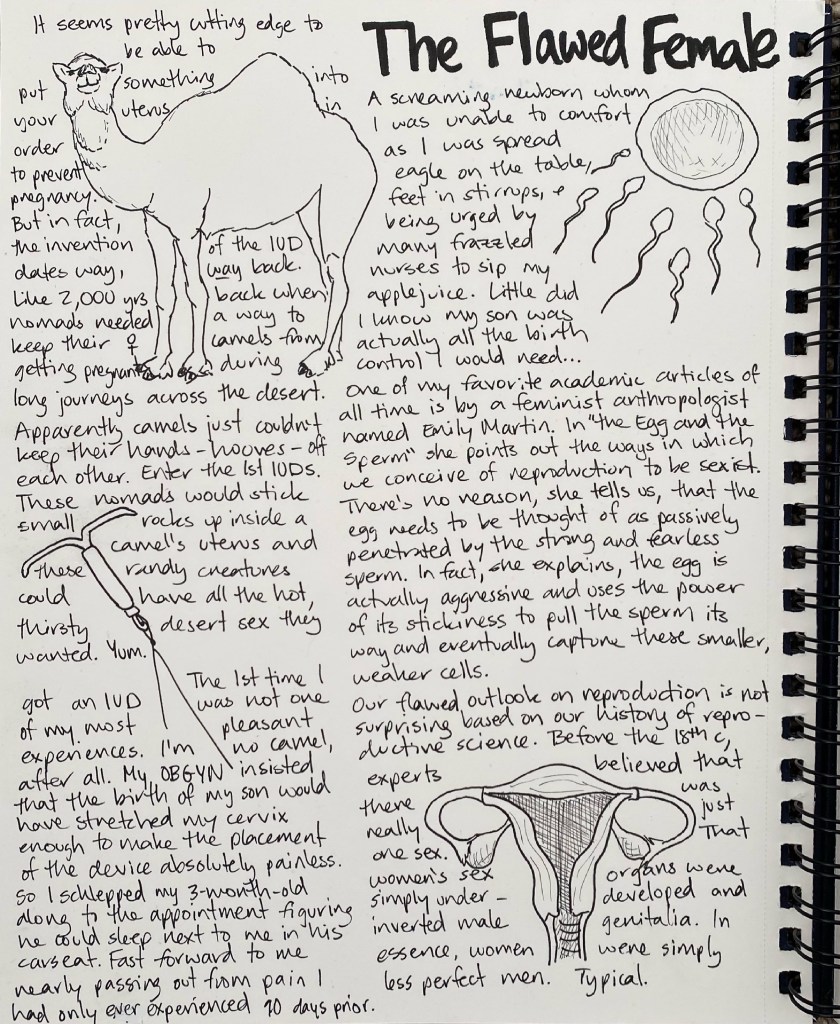 The Flawed Female
It seems pretty cutting edge to
be able to
put something into
your uterus in
order
to prevent
pregnancy.
But in fact,
the invention of the IUD
dates way, way back.
Like 2,000 yrs back when
nomads needed a way to
keep their ♀ camels from
getting pregnant during
long journeys across the desert.
Apparently camels just couldn't
keep their hands - hooves - off
each other. Enter the 1st IUDs.
These nomads would stick
small rocks up inside a
camel's uterus and
these randy creatures
could have all the hot,
thirsty desert sex they
wanted. Yum.
The 1st time I
got an IUD was not one
of my most pleasant
experiences. I'm no camel,
after all. My OBGYN insisted
that the birth of my son would
have stretched my cervix
enough to make the placement
of the device absolutely painless.
So I schlepped my 3-month-old
along to the appointment figuring
he could sleep next to me in his
carseat. Fast forward to me
nearly passing out from pain I
had only ever experienced 90 days prior.
A screaming newborn whom
I was unable to comfort
as I was spread
eagle on the table,
feet in stirrups, +
being urged by
many frazzled
nurses to sip my
applejuice. Little did
I know my son was
actually all the birth
control I would need...
One of my favorite academic articles of
all time is by a feminist anthropologist
named Emily Martin. In "the Egg and the
Sperm" she points out the ways in which
we conceive of reproduction to be sexist.
There's no reason, she tells us, that the
egg needs to be thought of as passively
penetrated by the strong and fearless
sperm. In fact, she explains, the egg is
actually aggressive and uses the power
of its stickiness to pull the sperm its
way and eventually capture these smaller,
weaker cells.
Our flawed outlook on reproduction is not
surprising based on our history of repro-
ductive science. Before the 18th c,
experts believed that
there was
really just
one sex. That
women's sex organs were
simply under- developed and
inverted male genitalia. In
essence, women were simply
less perfect men. Typical.